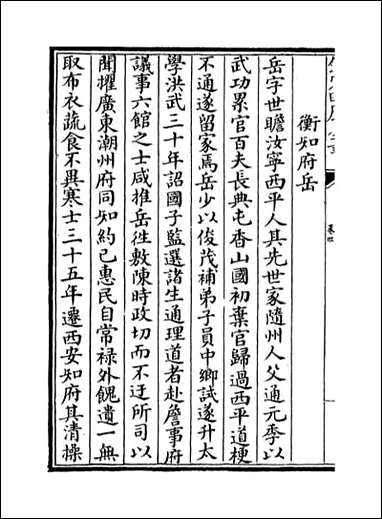 衡知府岳
岳字世瞻汝寧西平人其先世家隨州人父通元季以
武功累官百夫長典屯香山國初棄官歸過西平道梗
不通遂留家焉岳少以俊茂補弟子員中鄉試遂升太
學洪武三十年詔國子監選諸生通理道者赴詹事府
議事六館之士咸推岳徃敷陳時政切而不迂所司以
聞擢廣東潮州府同知約己惠民自常祿外餽遺一無
取布衣蔬食不異寒士三十五年遷西安知府其清操